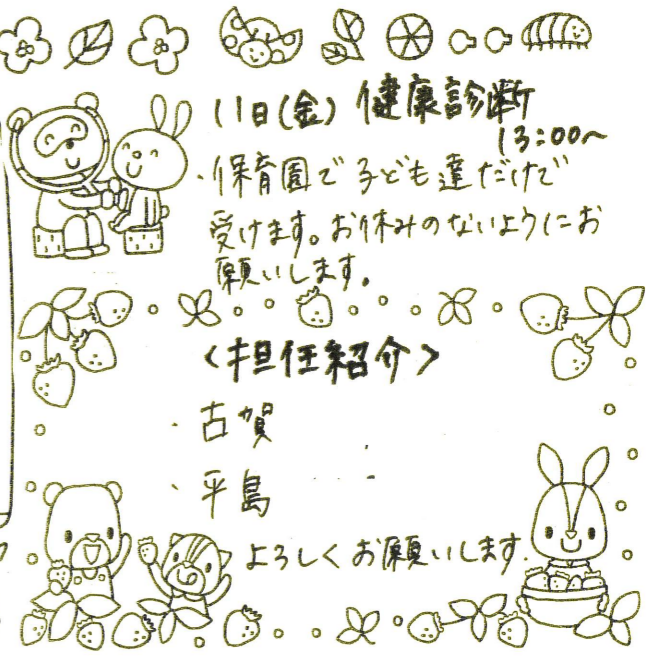 11日(金) 健康診断
13:00~
・保育園で子ども達だけで
受けます。お休みのないようにお
願いします。
<担任紹介>
・古賀
・平島
よろしくお願いします.